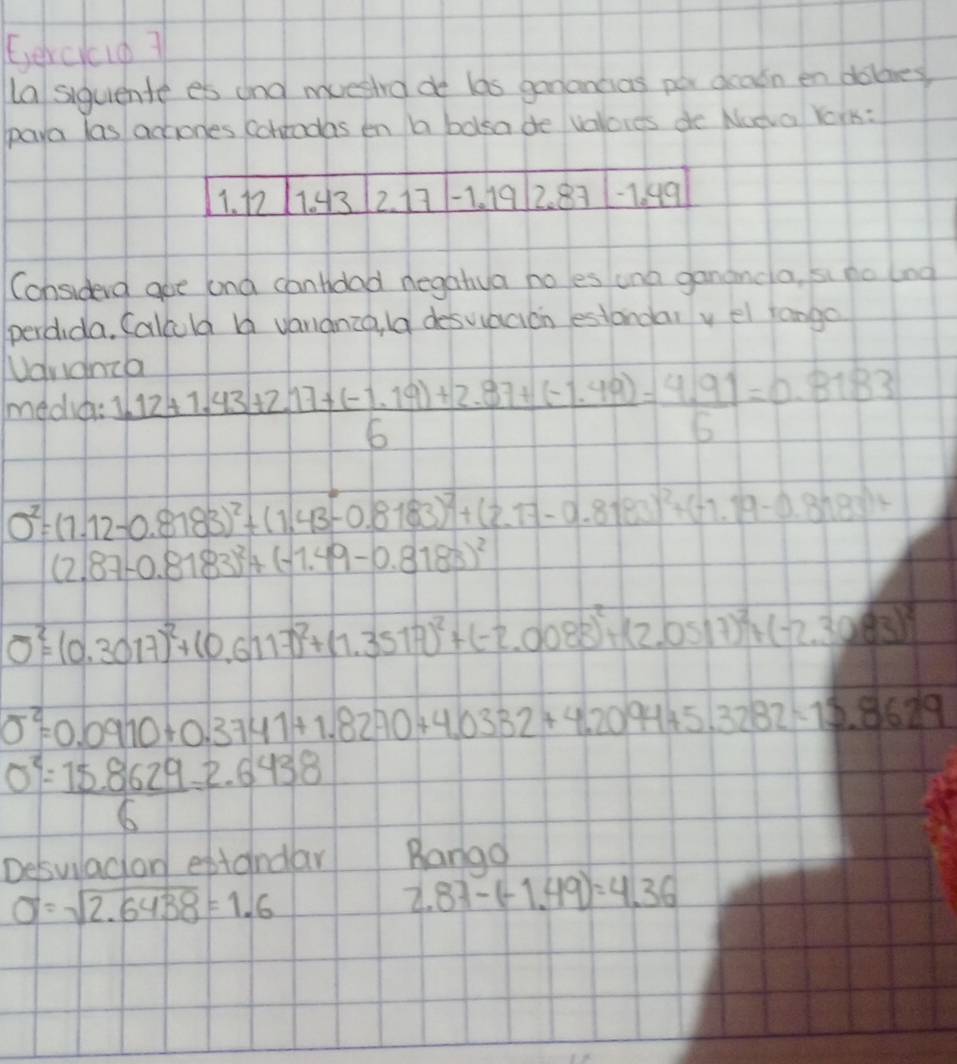 Ejercicio 7
La siguiente es una muestra de las ganancias por acción en dolares,
para las acciones cotizadas en la bolsa de valores de Nueva York:
1.12 1.43 2.17 -1.19 2.87 -1.49
Considera que una cantidad negativa no es una ganancia, si no una
perdida. Calcula la varianza, la desviación estandar y el rango
Varianza
media: 1.12+1.43+2.17+(-1.19)+2.87+(-1.49) = 4.91 = 0.8183
6 6
σ²=(1.12-0.8183)²+(1.43-0.8183)²+(2.17-0.8183)²+(-1.19-0.8183)²+
(2.87-0.8183)²+(-1.49-0.8183)²
σ²=(0.3017)²+(0.6117)²+(1.3517)²+(-2.0083)²+(2.0517)²+(-2.3083)²
σ²=0.0910+0.3741+1.8270+4.0332+4.2094+5.3282=15.8629
σ²=15.8629=2.6438
6
Desviacion estandar Rango
σ=√2.6438=1.6 2.87-(-1.49)=4.36